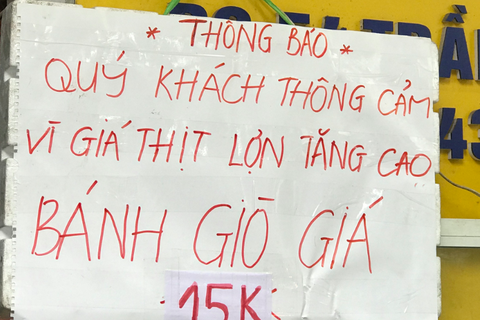 * THÔNG BÁO *
QUÝ KHÁCH THÔNG CẢM
VÌ GIÁ THỊT LỢN TĂNG CAO
BÁNH GIÒ GIÁ
15K